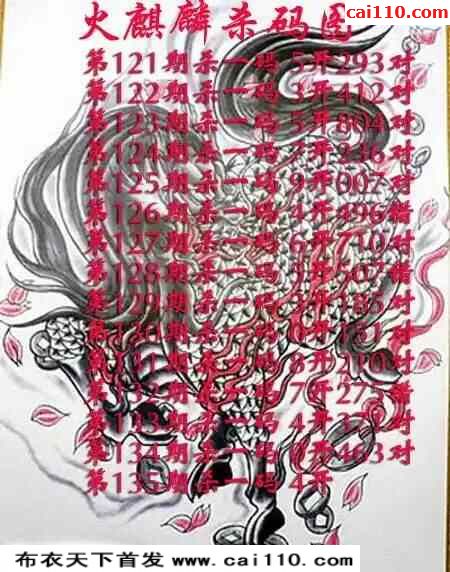 cai110.com
火麒麟杀码图
第121期杀一码 5开293对
第122期杀一码 3开412对
第123期杀一码 5开804对
第124期杀一码 开236对
第125期杀一码 9开007对
第126期杀一码 4开496错
第127期杀一码 6开710对
第128期杀一码 开507错
第129期杀一码 开185对
第130期杀一码 开对
期杀一码 8开对
期杀一码 7开错
第133期杀一码 4开对
第134期杀一码 开463对
第135期杀一码 4开
布衣天下首发 www.cai110.com